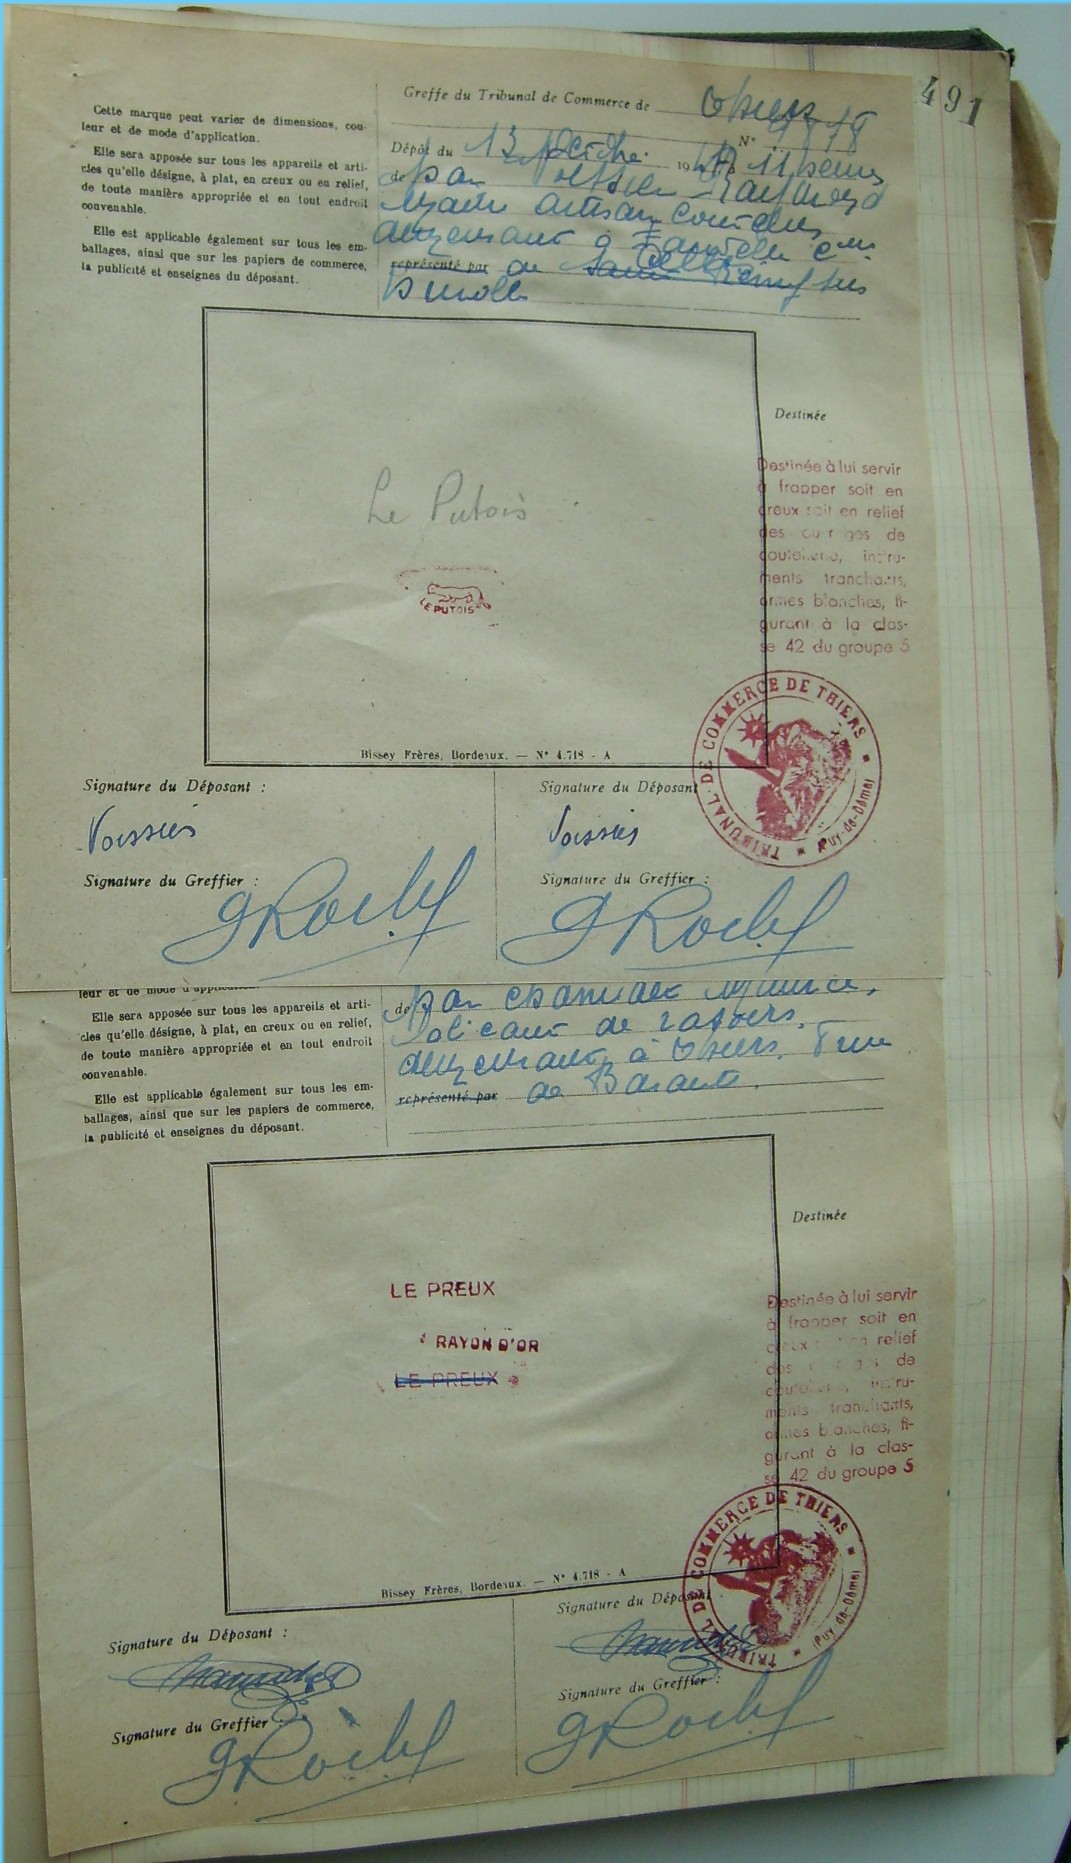 491
Greffe du Tribunal de Commerce de Thiers
Cette marque peut varier de dimensions, cou-
leur et de mode d'application.
Elle sera apposée sur tous les appareils et arti-
cles qu'elle désigne, à plat, en creux ou en relief,
de toute manière appropriée et en tout endroit
convenable.
Elle est applicable également sur tous les em-
ballages, ainsi que sur les papiers de commerce,
la publicité et enseignes du déposant.
N°
Dépôt du 13 Octobre 19 11 heures
de par
artisan
demeurant à
représenté par de
Destinée
Le Putois
LE PUTOIS
Destinée à lui servir
à frapper soit en
creux soit en relief
des ouvrages de
coutellerie, instru-
ments tranchants,
armes blanches, fi-
gurant à la clas-
se 42 du groupe 5
TRIBUNAL DE COMMERCE DE THIERS
(Puy-de-Dôme)
Bissey Frères, Bordeaux. — N° 4.718 - A
Signature du Déposant :
Signature du Déposant
Signature du Greffier :
Signature du Greffier :
leur et de mode d'application.
Elle sera apposée sur tous les appareils et arti-
cles qu'elle désigne, à plat, en creux ou en relief,
de toute manière appropriée et en tout endroit
convenable.
Elle est applicable également sur tous les em-
ballages, ainsi que sur les papiers de commerce,
la publicité et enseignes du déposant.
de par
de rasoirs
demeurant à Thiers, rue
représenté par de Barante.
Destinée
LE PREUX
RAYON D'OR
LE PREUX
Destinée à lui servir
à frapper soit en
creux soit en relief
des ouvrages de
coutellerie, instru-
ments tranchants,
armes blanches, fi-
gurant à la clas-
se 42 du groupe 5
TRIBUNAL DE COMMERCE DE THIERS
(Puy-de-Dôme)
Bissey Frères, Bordeaux. — N° 4.718 - A
Signature du Déposant :
Signature du Déposant
Signature du Greffier :
Signature du Greffier :